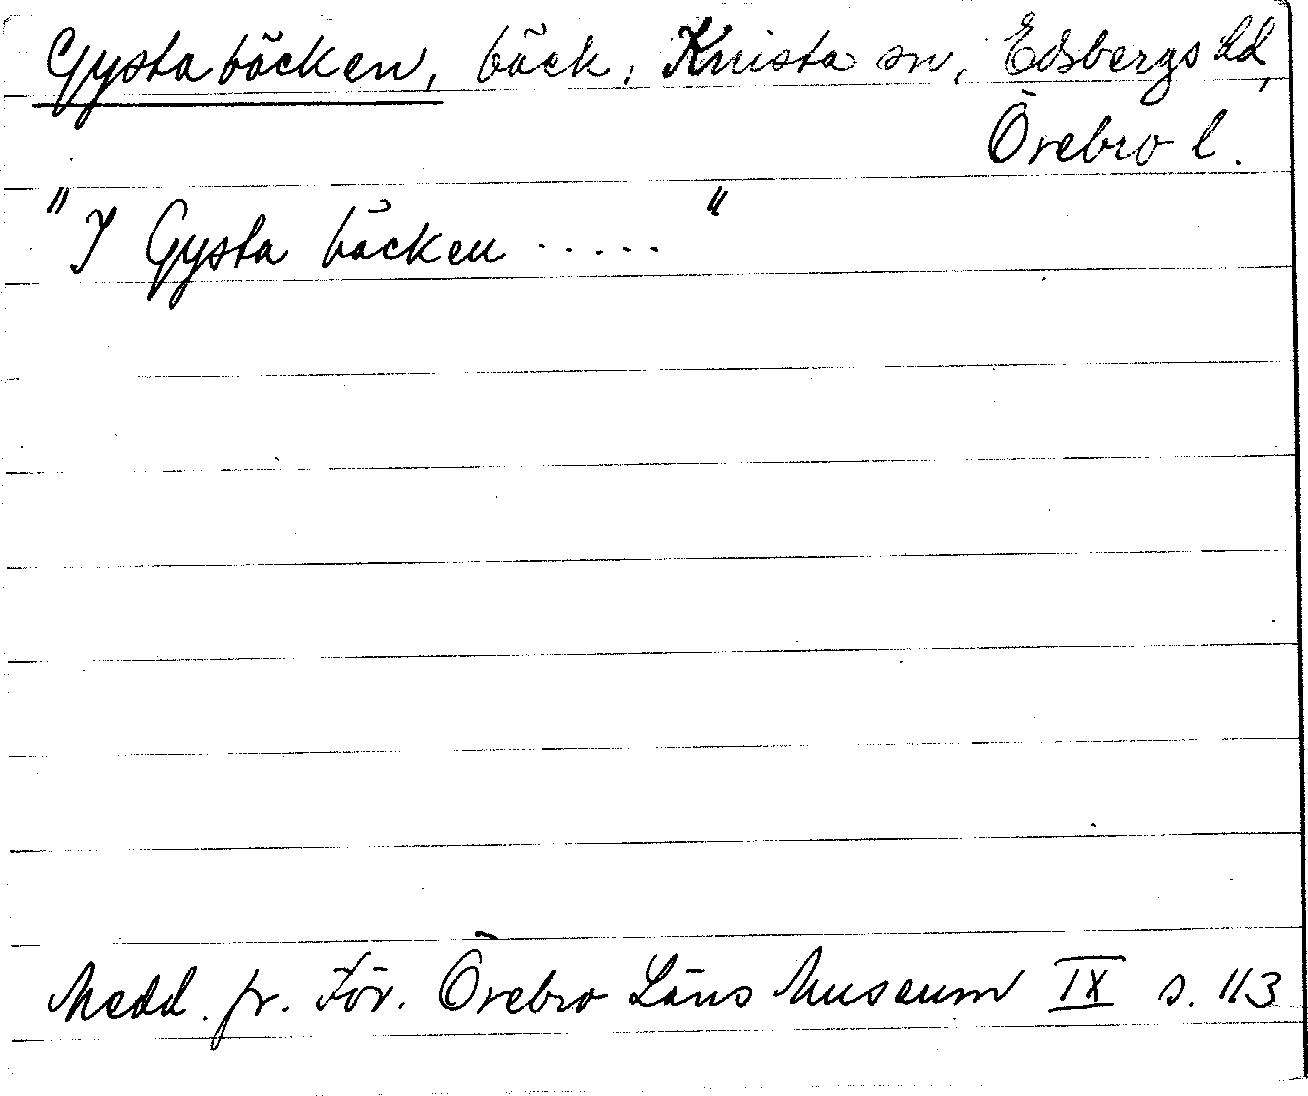 Gystabäcken, bäck, Knista sn, Edsbergs hd,
Örebro l.
"I Gysta bäcken ....."
Medd. fr. För. Örebro Läns Museum IX s. 113